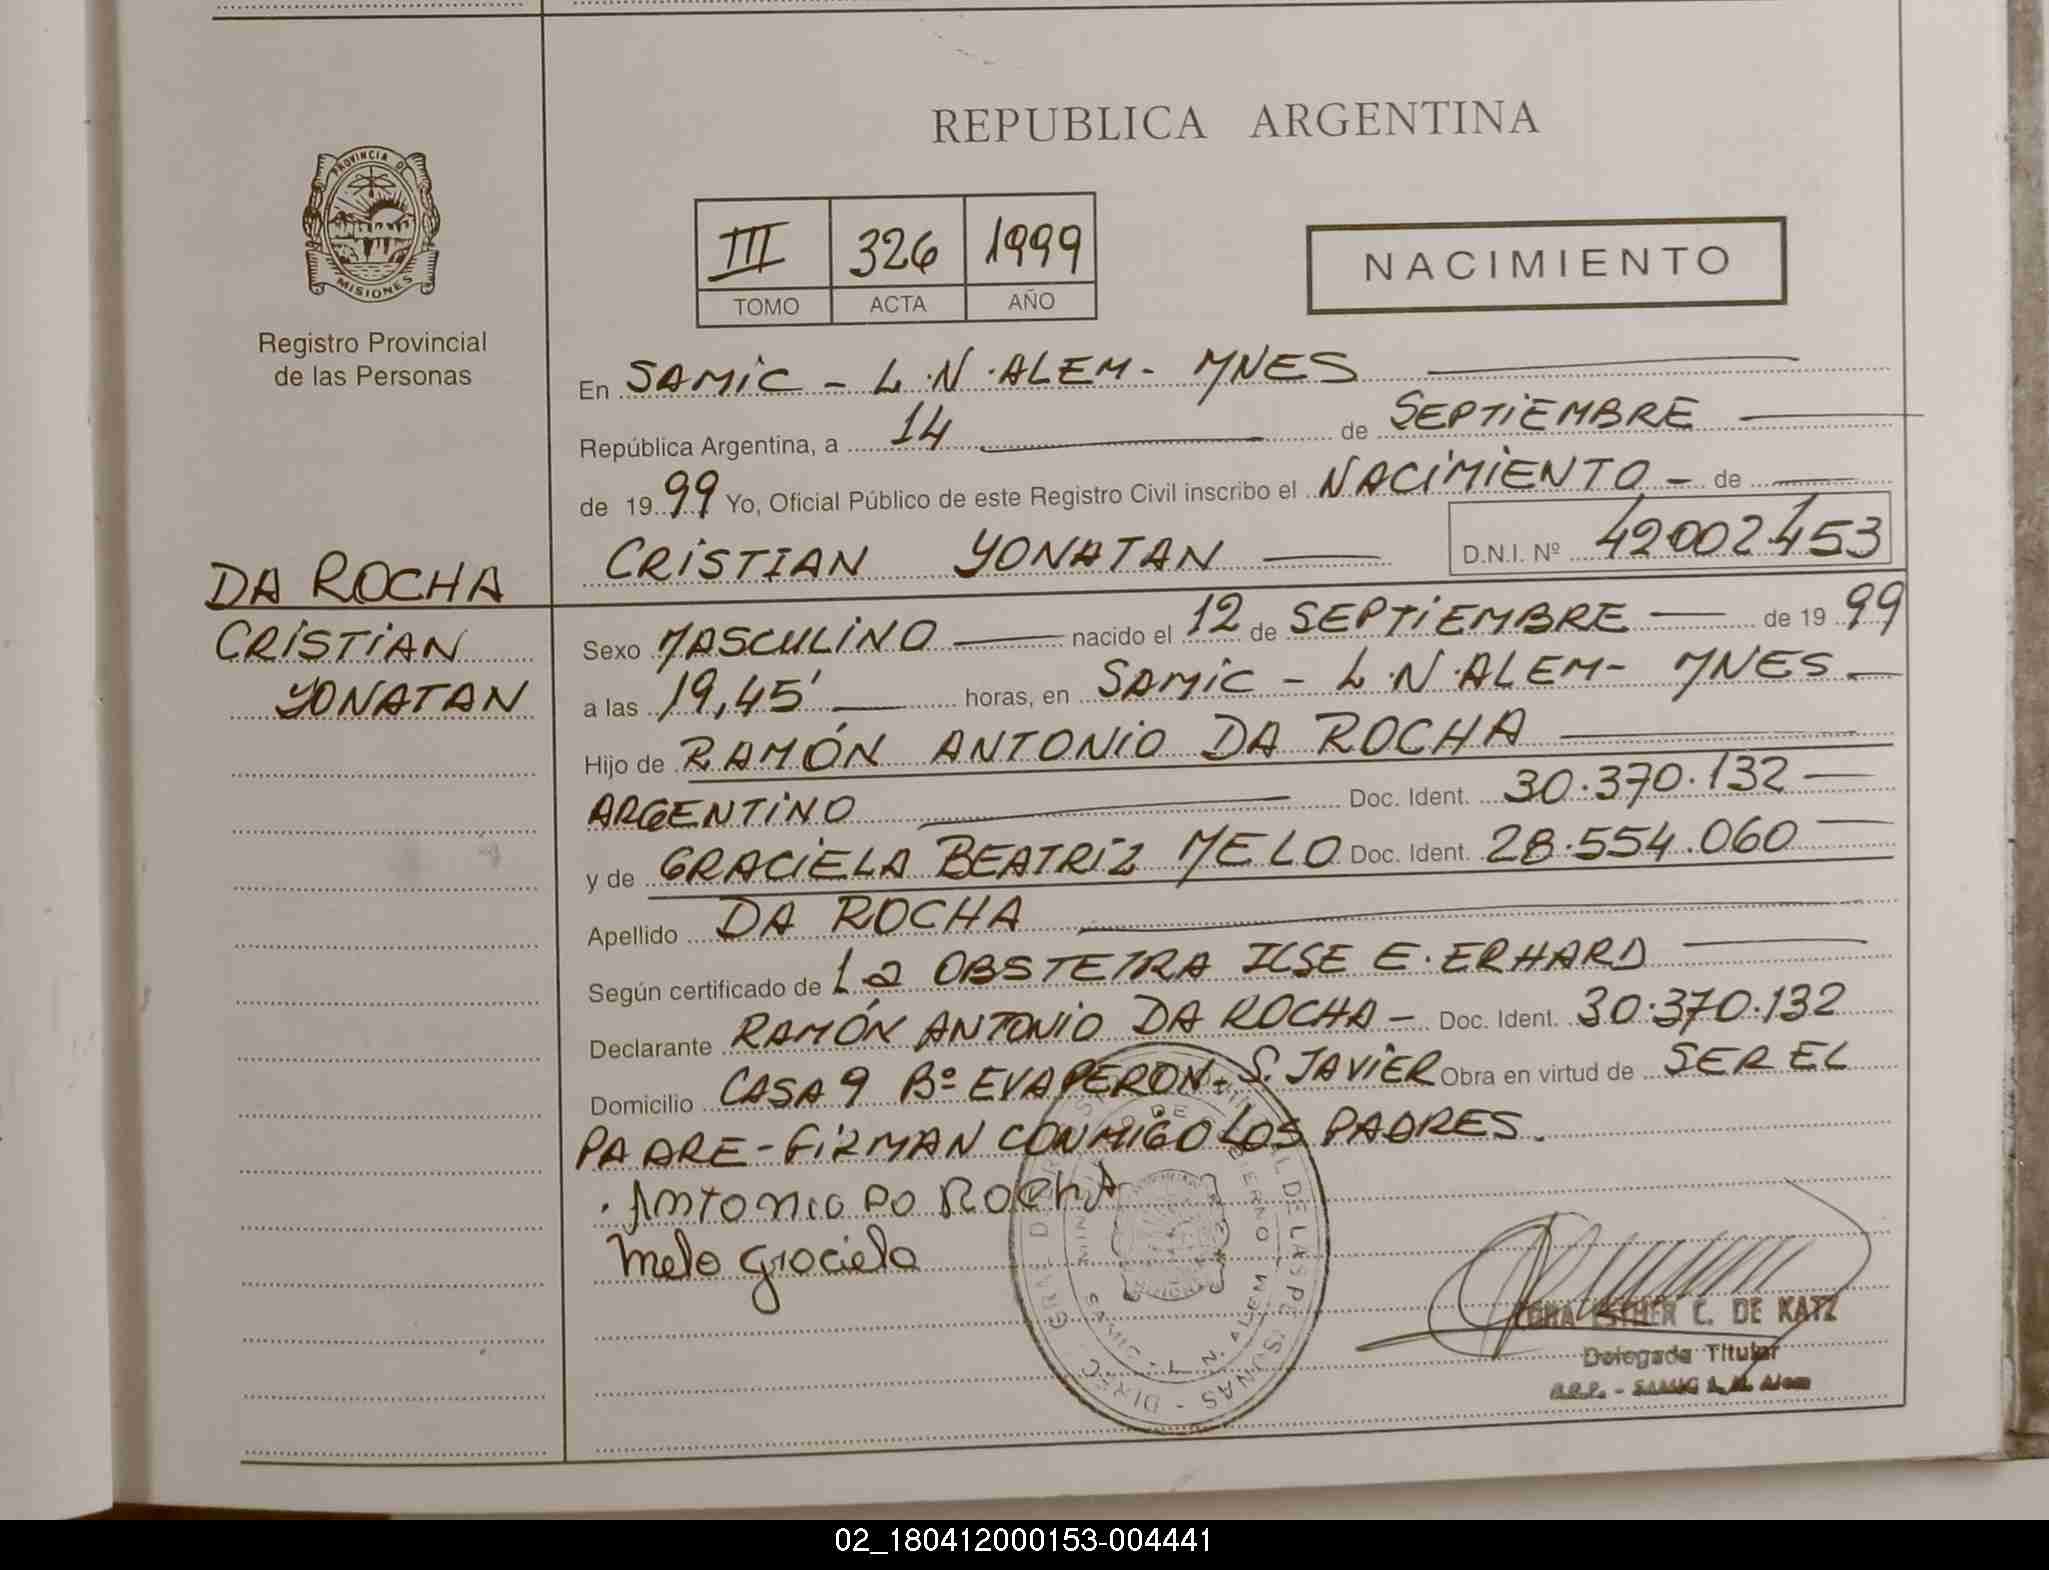 REPUBLICA ARGENTINA
PROVINCIA DE
MISIONES
Registro Provincial
de las Personas
III 326 1999
TOMO ACTA AÑO
NACIMIENTO
En SAMIC - L.N.ALEM- MNES
República Argentina, a 14 de SEPTIEMBRE
de 1999 Yo, Oficial Público de este Registro Civil inscribo el NACIMIENTO - de
CRISTIAN YONATAN D.N.I. Nº 42002453
DA ROCHA
CRISTIAN
YONATAN
Sexo MASCULINO nacido el 12 de SEPTIEMBRE de 1999
a las 19,45' horas, en SAMIC - L.N.ALEM- MNES
Hijo de RAMÓN ANTONIO DA ROCHA
ARGENTINO Doc. Ident. 30.370.132
y de GRACIELA BEATRIZ MELO Doc. Ident. 28.554.060
Apellido DA ROCHA
Según certificado de La OBSTETRA ILSE E. ERHARD
Declarante RAMÓN ANTONIO DA ROCHA - Doc. Ident. 30.370.132
Domicilio CASA 9 Bº EVA PERON- S. JAVIER Obra en virtud de SER EL
PADRE - FIRMAN CONMIGO LOS PADRES.
Antonio Da Rocha
Melo Graciela
ESTHER C. DE KATZ
Delegada Titular
R.R.P. - SAMIC L.N. Alem
02_180412000153-004441